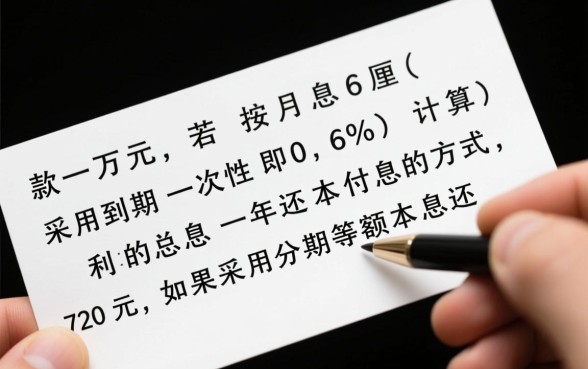 款一万元，若 按月息6厘（
采用到期 一次性 即0，6%） 计算）
利:的总息 一年还本付息的方式，
720元，如果采用分期等额本息还